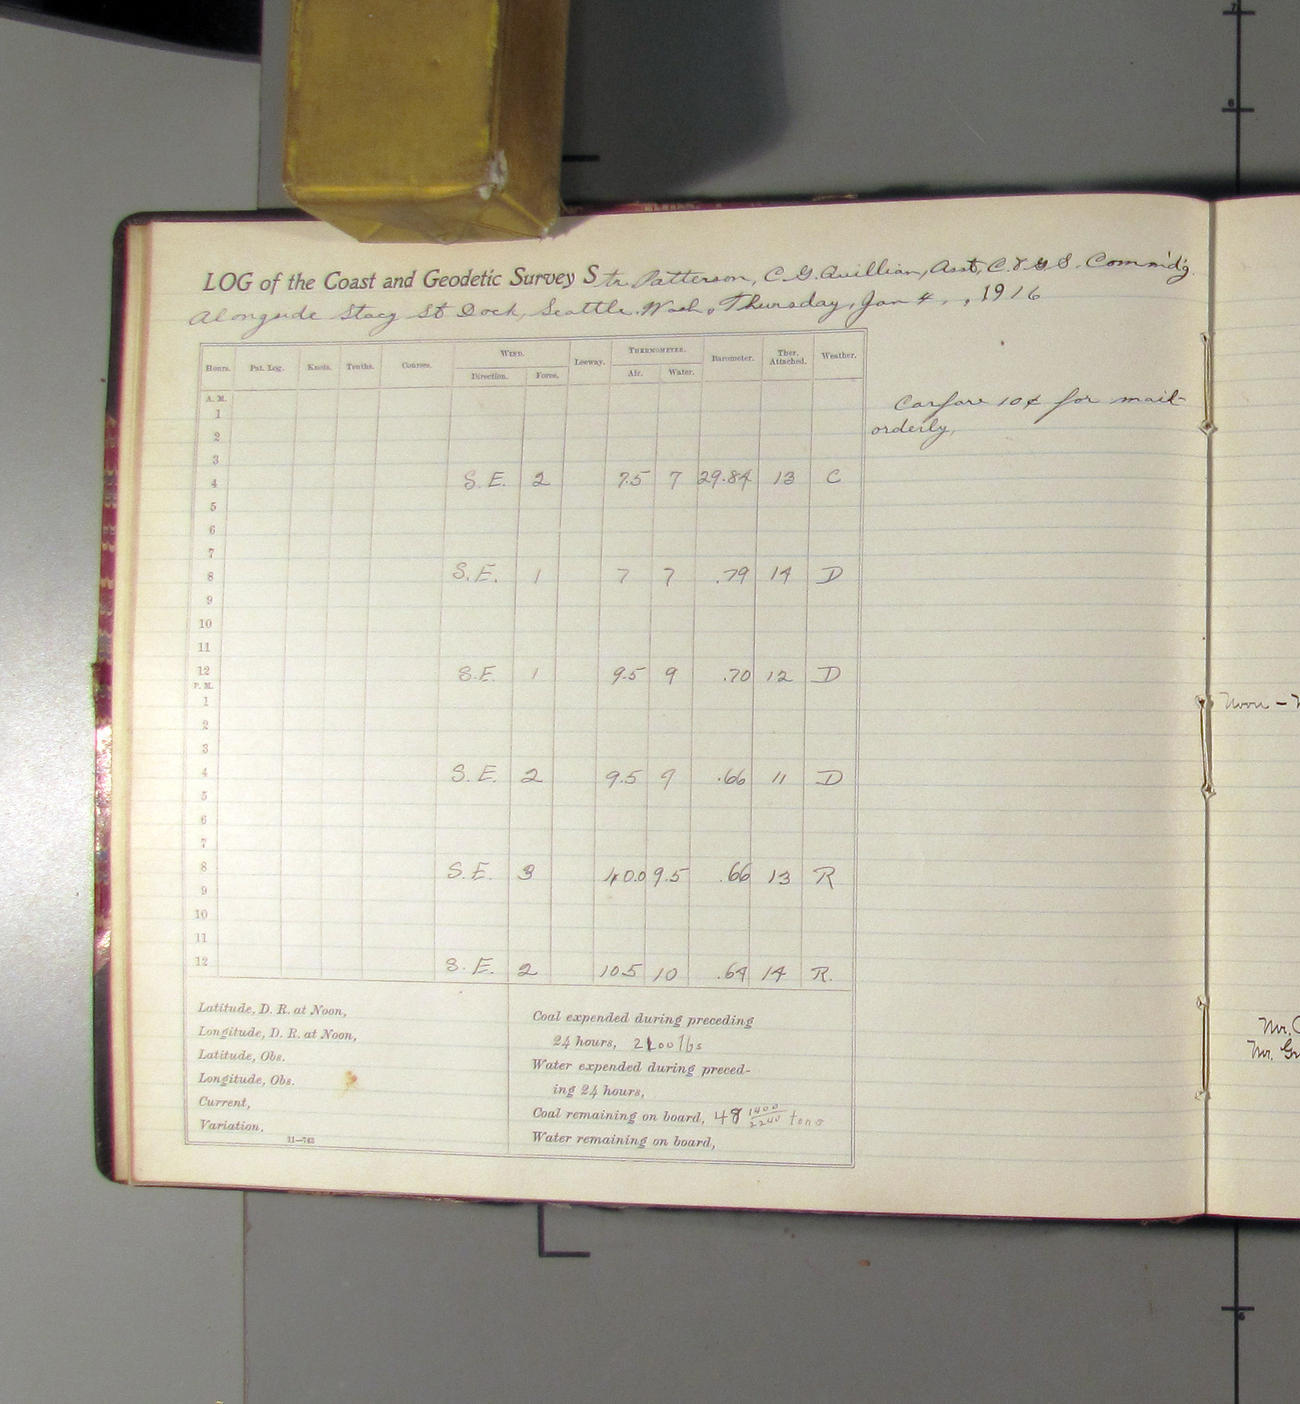 LOG of the Coast and Geodetic Survey Str. Patterson, C. G. Quillian, Asst, C. & G. S. Commd'g.
Alongside Stacy St Dock, Seattle, Wash, Thursday, Jan 4, , 1916
Hours. Pat. Log. Knots. Tenths. Courses. WIND. Direction. Force. Leeway. THERMOMETER. Air. Water. Barometer. Ther. Attached. Weather.
A. M.
1
Carfare 10¢ for mail-
2
orderly,
3
4 S. E. 2 7.5 7 29.84 13 C
5
6
7
8 S. E. 1 7 7 .79 14 D
9
10
11
12 S. E. 1 9.5 9 .70 12 D
P. M.
1
Noon –
2
3
4 S. E. 2 9.5 9 .66 11 D
5
6
7
8 S. E. 3 40.0 9.5 .66 13 R
9
10
11
12 S. E. 2 10.5 10 .64 14 R.
Latitude, D. R. at Noon,
Longitude, D. R. at Noon,
Latitude, Obs.
Longitude, Obs.
Current,
Variation,
11—763
Coal expended during preceding
24 hours, 2200 lbs
Water expended during preced-
ing 24 hours,
Coal remaining on board, 48 1400/2240 tons
Water remaining on board,
Mr.
Mr.